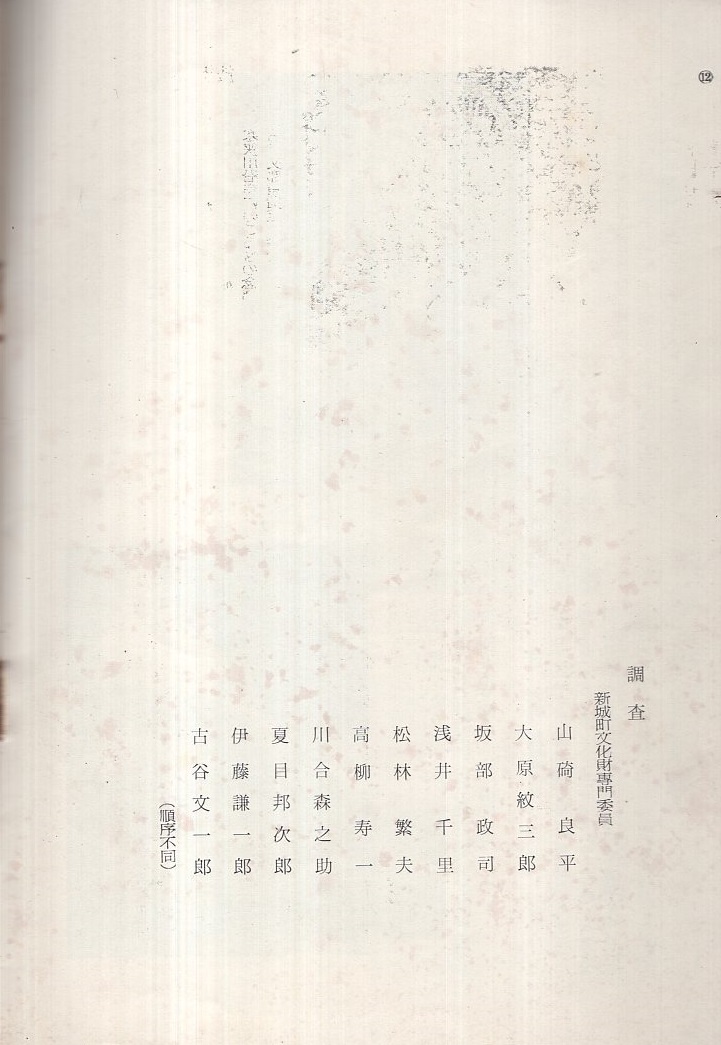 ⑫
調査
新城町文化財専門委員
山碕良平
大原紋三郎
坂部政司
浅井千里
松林繁夫
高柳寿一
川合森之助
夏目邦次郎
伊藤謙一郎
古谷文一郎
（順序不同）